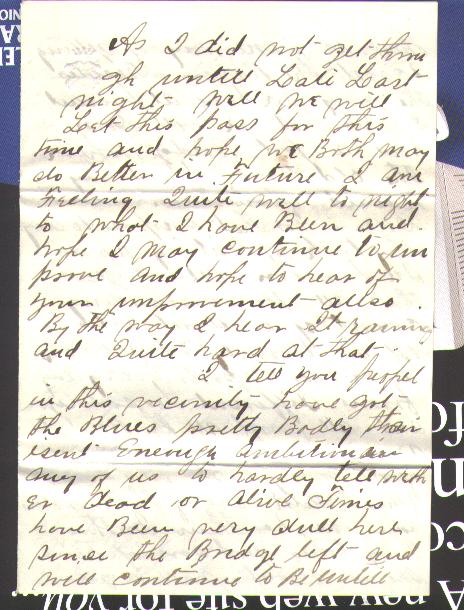 As I did not get throu
gh untill Late Last
night well we will
Let this pass for this
time and hope we Both may
do Better in Future I am
Feeling Quite well to night
to what I have Been and
hope I may continue to im
prove and hope to hear of
your improvement allso.
By the way I hear It raining
and Quite hard at that
I tell you peopel
in this vicinity have got
the Blues pretty Badly their
isent Enough ambition in
any of us to hardly tell weth
er dead or alive Times
have Been very dull here
since the Bridge left and
will continue to Be untill
A new web site for you